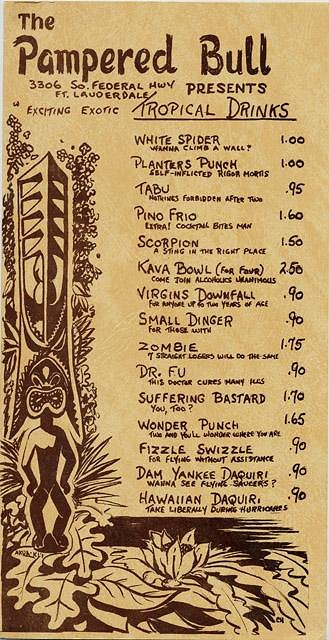 The
Pampered Bull
3306 So. FEDERAL HWY
FT. LAUDERDALE
PRESENTS
EXCITING EXOTIC TROPICAL DRINKS
WHITE SPIDER 1.00
WANNA CLIMB A WALL?
PLANTERS PUNCH 1.00
SELF-INFLICTED RIGOR MORTIS
TABU .95
NOTHINGS FORBIDDEN AFTER TWO
PINO FRIO 1.60
EXTRA! COCKTAIL BITES MAN
SCORPION 1.50
A STING IN THE RIGHT PLACE
KAVA BOWL (FOR FOUR) 2.50
COME JOIN ALCOHOLICS UNANIMOUS
VIRGINS DOWNFALL .90
FOR ANYONE UP TO TWO YEARS OF AGE
SMALL DINGER .90
FOR THOSE WITH
ZOMBIE 1.75
7 STRAIGHT LOSERS WILL DO THE SAME
DR. FU .90
THIS DOCTOR CURES MANY ILLS
SUFFERING BASTARD 1.70
YOU, TOO?
WONDER PUNCH 1.65
TWO AND YOU'LL WONDER WHERE YOU ARE
FIZZLE SWIZZLE .90
FOR FLYING WITHOUT ASSISTANCE
DAM YANKEE DAQUIRI .90
WANNA SEE FLYING SAUCERS?
HAWAIIAN DAQUIRI .90
TAKE LIBERALLY DURING HURRICANES